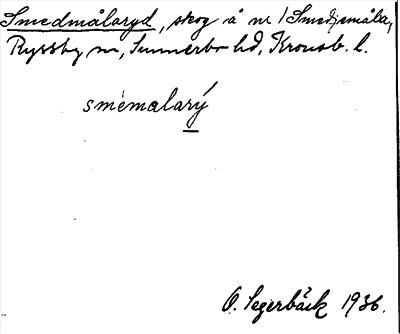 Smedmålaryd, skog å nr 1 Smedjemåla,
Ryssby sn, Sunnerbo hd, Kronob. l.
smèmalarý
O. Segerbäck 1936.